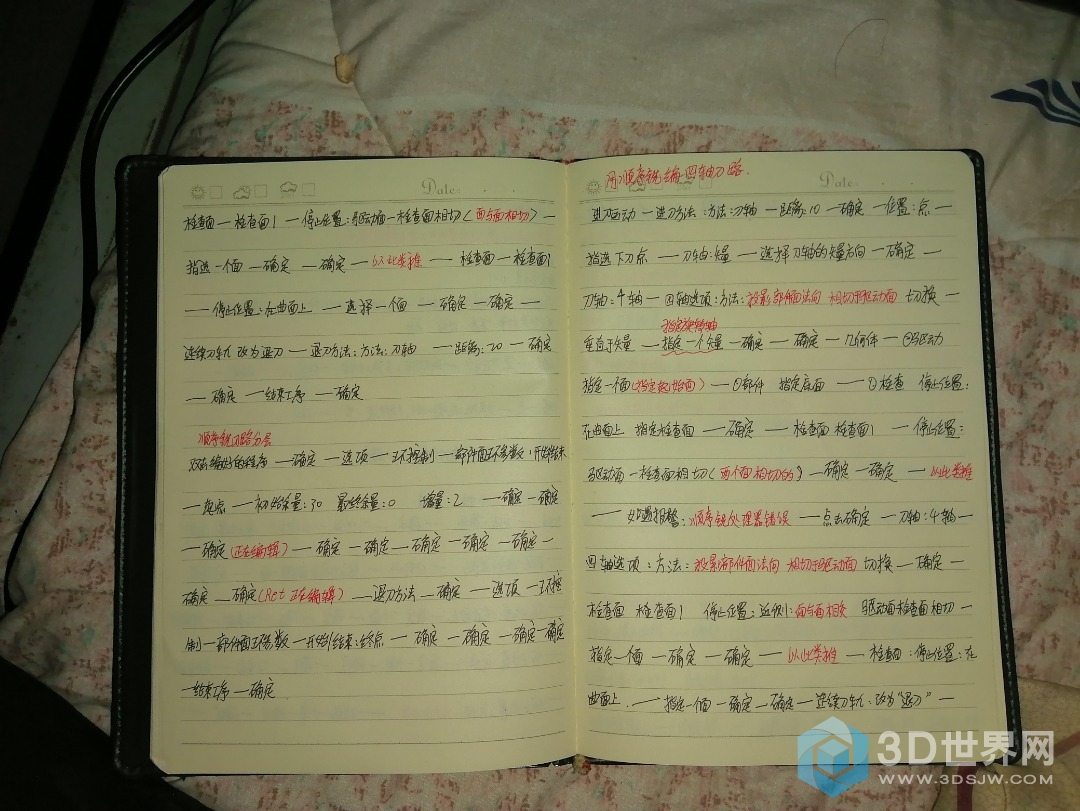 Date:
检查面一检查面1一停止位置:驱动面一检查面相切(面与面相切)一
指选一个面一确定一确定一以此类推一检查面一检查面1
一停止位置:在曲面上一选择一个面一确定一确定一
连续刀轨改为退刀一退刀方法:方法:刀轴一距离:20一确定
一确定一结束工序一确定
顺序铣刀路分层
双击编好的程序一确定一选项一环控制一部件面环参数:开始/结束
一起点一初始余量:30 最终余量:0 增量:2 一确定一确定
一确定(正在编辑)一确定一确定一确定一确定一确定一
确定一确定(Ret 正在编辑)一退刀方法一确定一选项一环控
制一部件面环参数一开始/结束:终点一确定一确定一确定一确定
一结束工序一确定
用顺序铣编四轴刀路.
Date:
进刀运动一进刀方法:方法:刀轴一距离:10一确定一位置:点一
指选下刀点一刀轴:矢量一选择刀轴的矢量方向一确定一
刀轴:4轴一四轴选项:方法:投影部件面法向 相切于驱动面 切换一
指定旋转轴
垂直于矢量一指定一个矢量一确定一确定一几何体一①驱动
指定一个面(指定起始面)一①部件 指定底面一①检查 停止位置:
在曲面上 指定检查面一确定一检查面 检查面1一停止位置:
驱动面一检查面相切(两个面相切的)一确定一确定一以此类推
一如遇报警:顺序铣处理器错误一点击确定一刀轴:4轴一
四轴选项:方法:投影部件面法向 相切于驱动面 切换一确定一
检查面 检查面1 停止位置:近侧:面与面相交 驱动面检查面相切一
指定一个面一确定一确定一以此类推一检查面:停止位置:在
曲面上.一指定一个面一确定一确定一连续刀轨:改为“退刀”一
3D世界网
WWW.3DSJW.COM